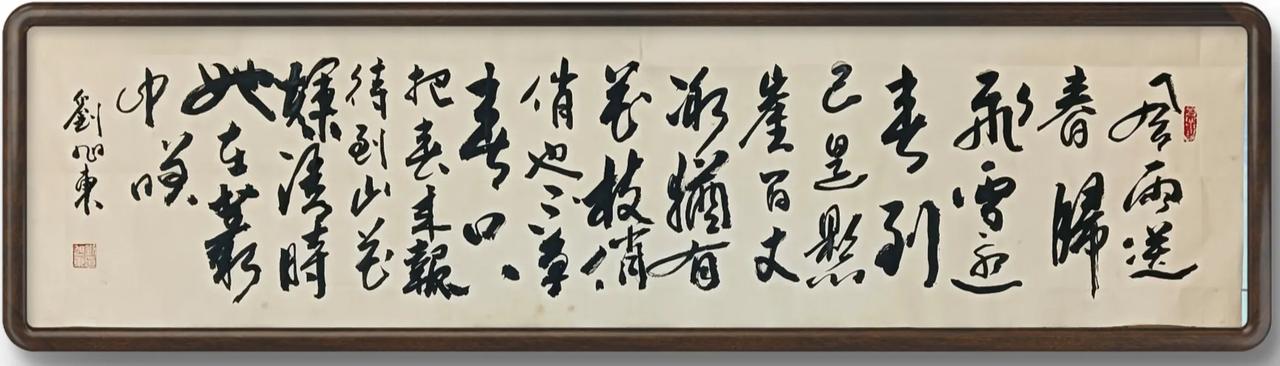 風雨送
春歸
飛雪迎
春到
已是懸
崖百丈
冰猶有
花枝俏
俏也不争
春只
把春来報
待到山花
爛漫時
她在叢
中笑
劉旭東